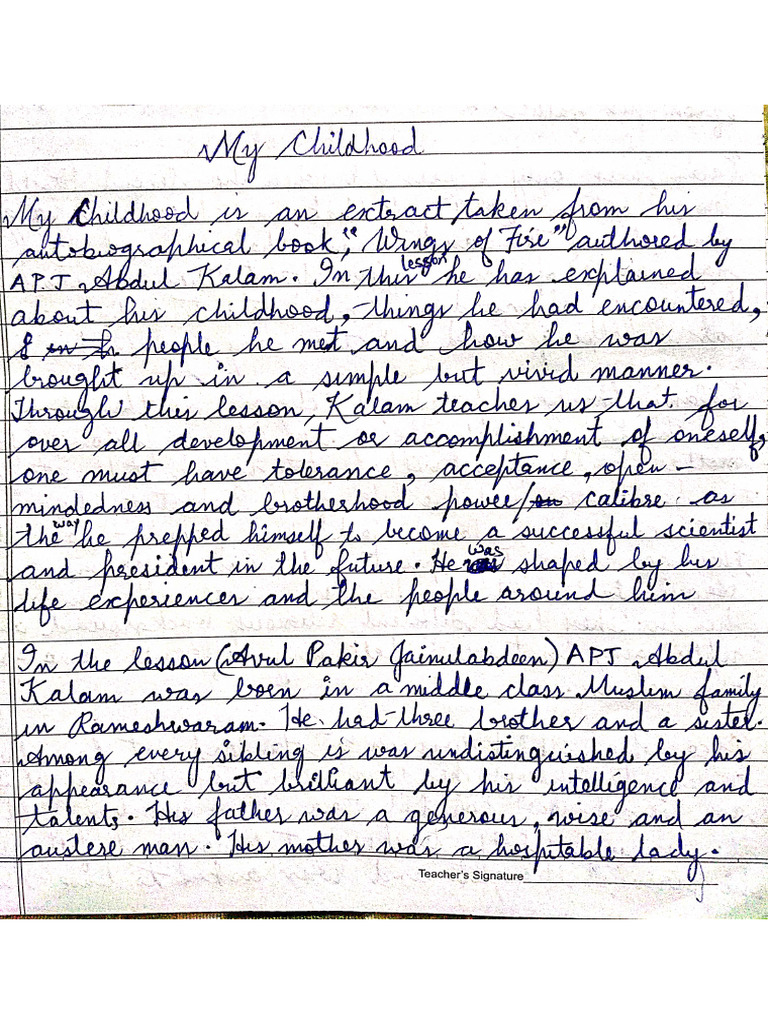 My Childhood
My Childhood is an extract taken from his
autobiographical book, "Wings of Fire" authored by
A.P.J Abdul Kalam. In this lesson he has explained
about his childhood, things he had encountered,
& people he met and how he was
brought up in a simple but vivid manner.
Through this lesson, Kalam teaches us that for
over all development or accomplishment of oneself,
one must have tolerance, acceptance, open-
mindedness and brotherhood power/ calibre as
the way he prepped himself to become a successful scientist
and president in the future. He was shaped by his
life experiences and the people around him
In the lesson (Avul Pakir Jainulabdeen) APJ Abdul
Kalam was born in a middle class Muslim family
in Rameshwaram. He had three brother and a sister.
Among every sibling is was undistinguished by his
appearance but brilliant by his intelligence and
talents. His father was a generous, wise and an
austere man. His mother was a hospitable lady.
Teacher's Signature